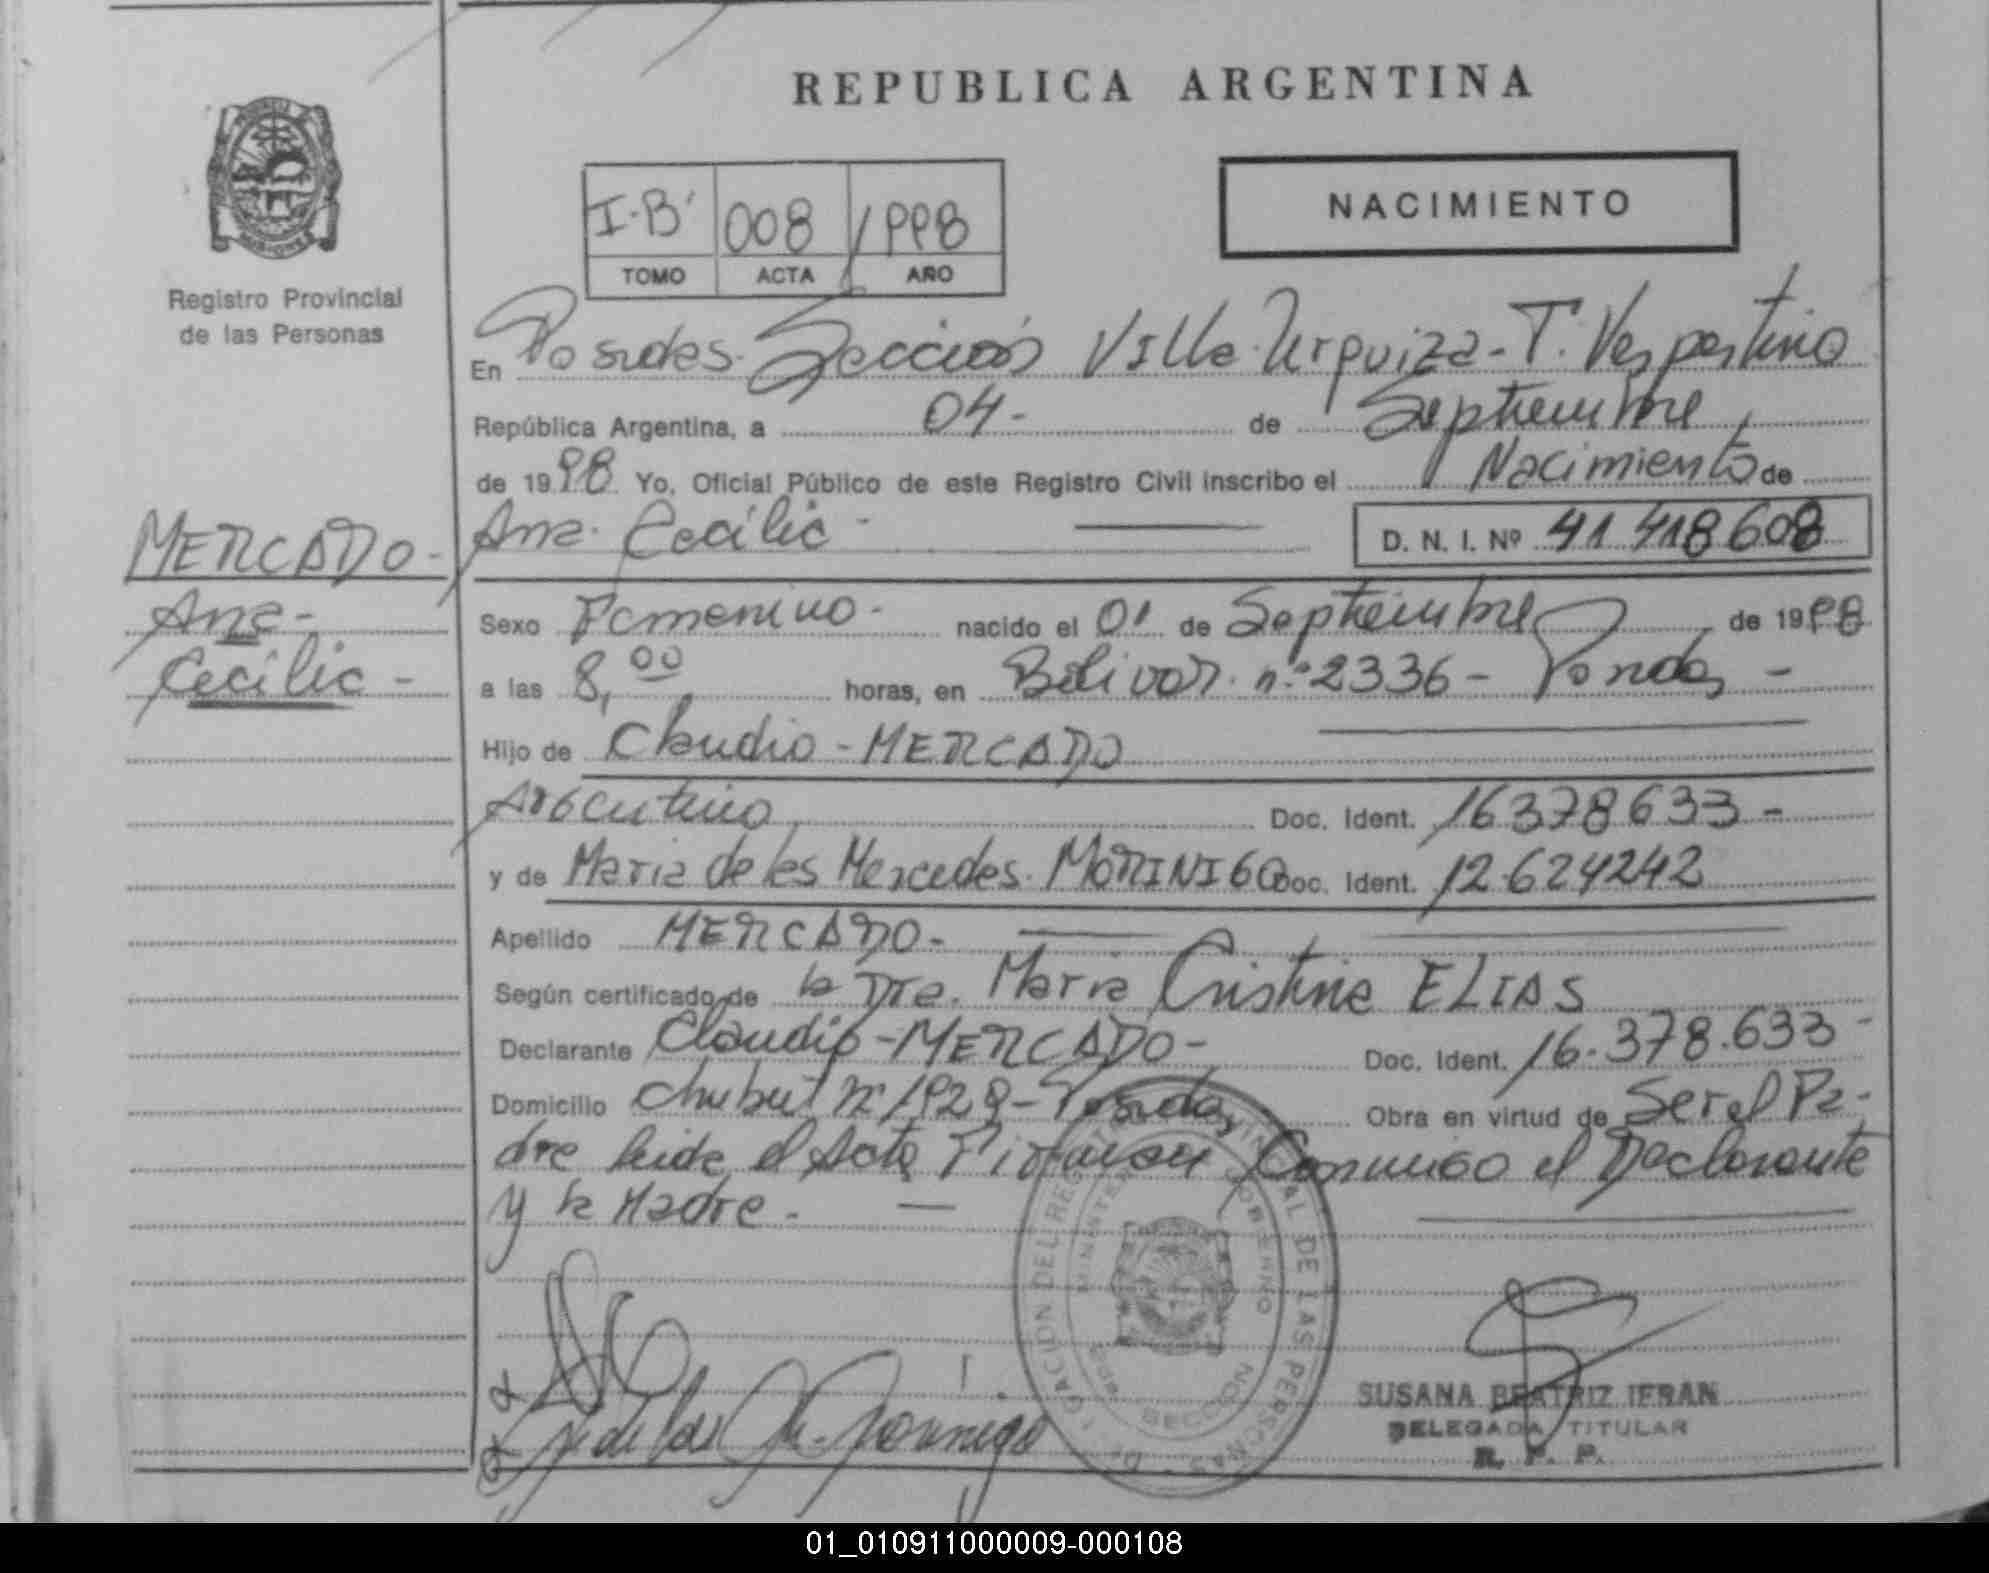 REPUBLICA ARGENTINA
Registro Provincial
de las Personas
I-B' 008 1998
TOMO ACTA AÑO
NACIMIENTO
En Posadas. Sección Villa Urquiza - T. Vespertino
República Argentina, a 04- de Septiembre
de 1998 Yo, Oficial Público de este Registro Civil inscribo el Nacimiento de
Ana. Cecilia - D. N. I. Nº 41 418608
MERCADO-
Ana-
Cecilia-
Sexo Femenino- nacido el 01 de Septiembre de 1998
a las 8,00 horas, en Bolivar. nº 2336 - Posadas -
Hijo de Claudio - MERCADO
Argentino Doc. Ident. 16378633-
y de Maria de las Mercedes. MORINIGO Doc. Ident. 12.624242
Apellido MERCADO-
Según certificado de la Dra. Maria Cristina ELIAS
Declarante Claudio - MERCADO- Doc. Ident. 16.378.633-
Domicilio Chubut Nº 1929 - Posadas Obra en virtud de Ser el Pa-
dre leida el Acta Firman Conmigo el Declarante
y la Madre. -
DELEGACION DEL REGISTRO PROVINCIAL DE LAS PERSONAS
MINISTERIO GOBIERNO
SECCION
SUSANA BEATRIZ IFRAN
DELEGADA TITULAR
R. P. P.
01_010911000009-000108